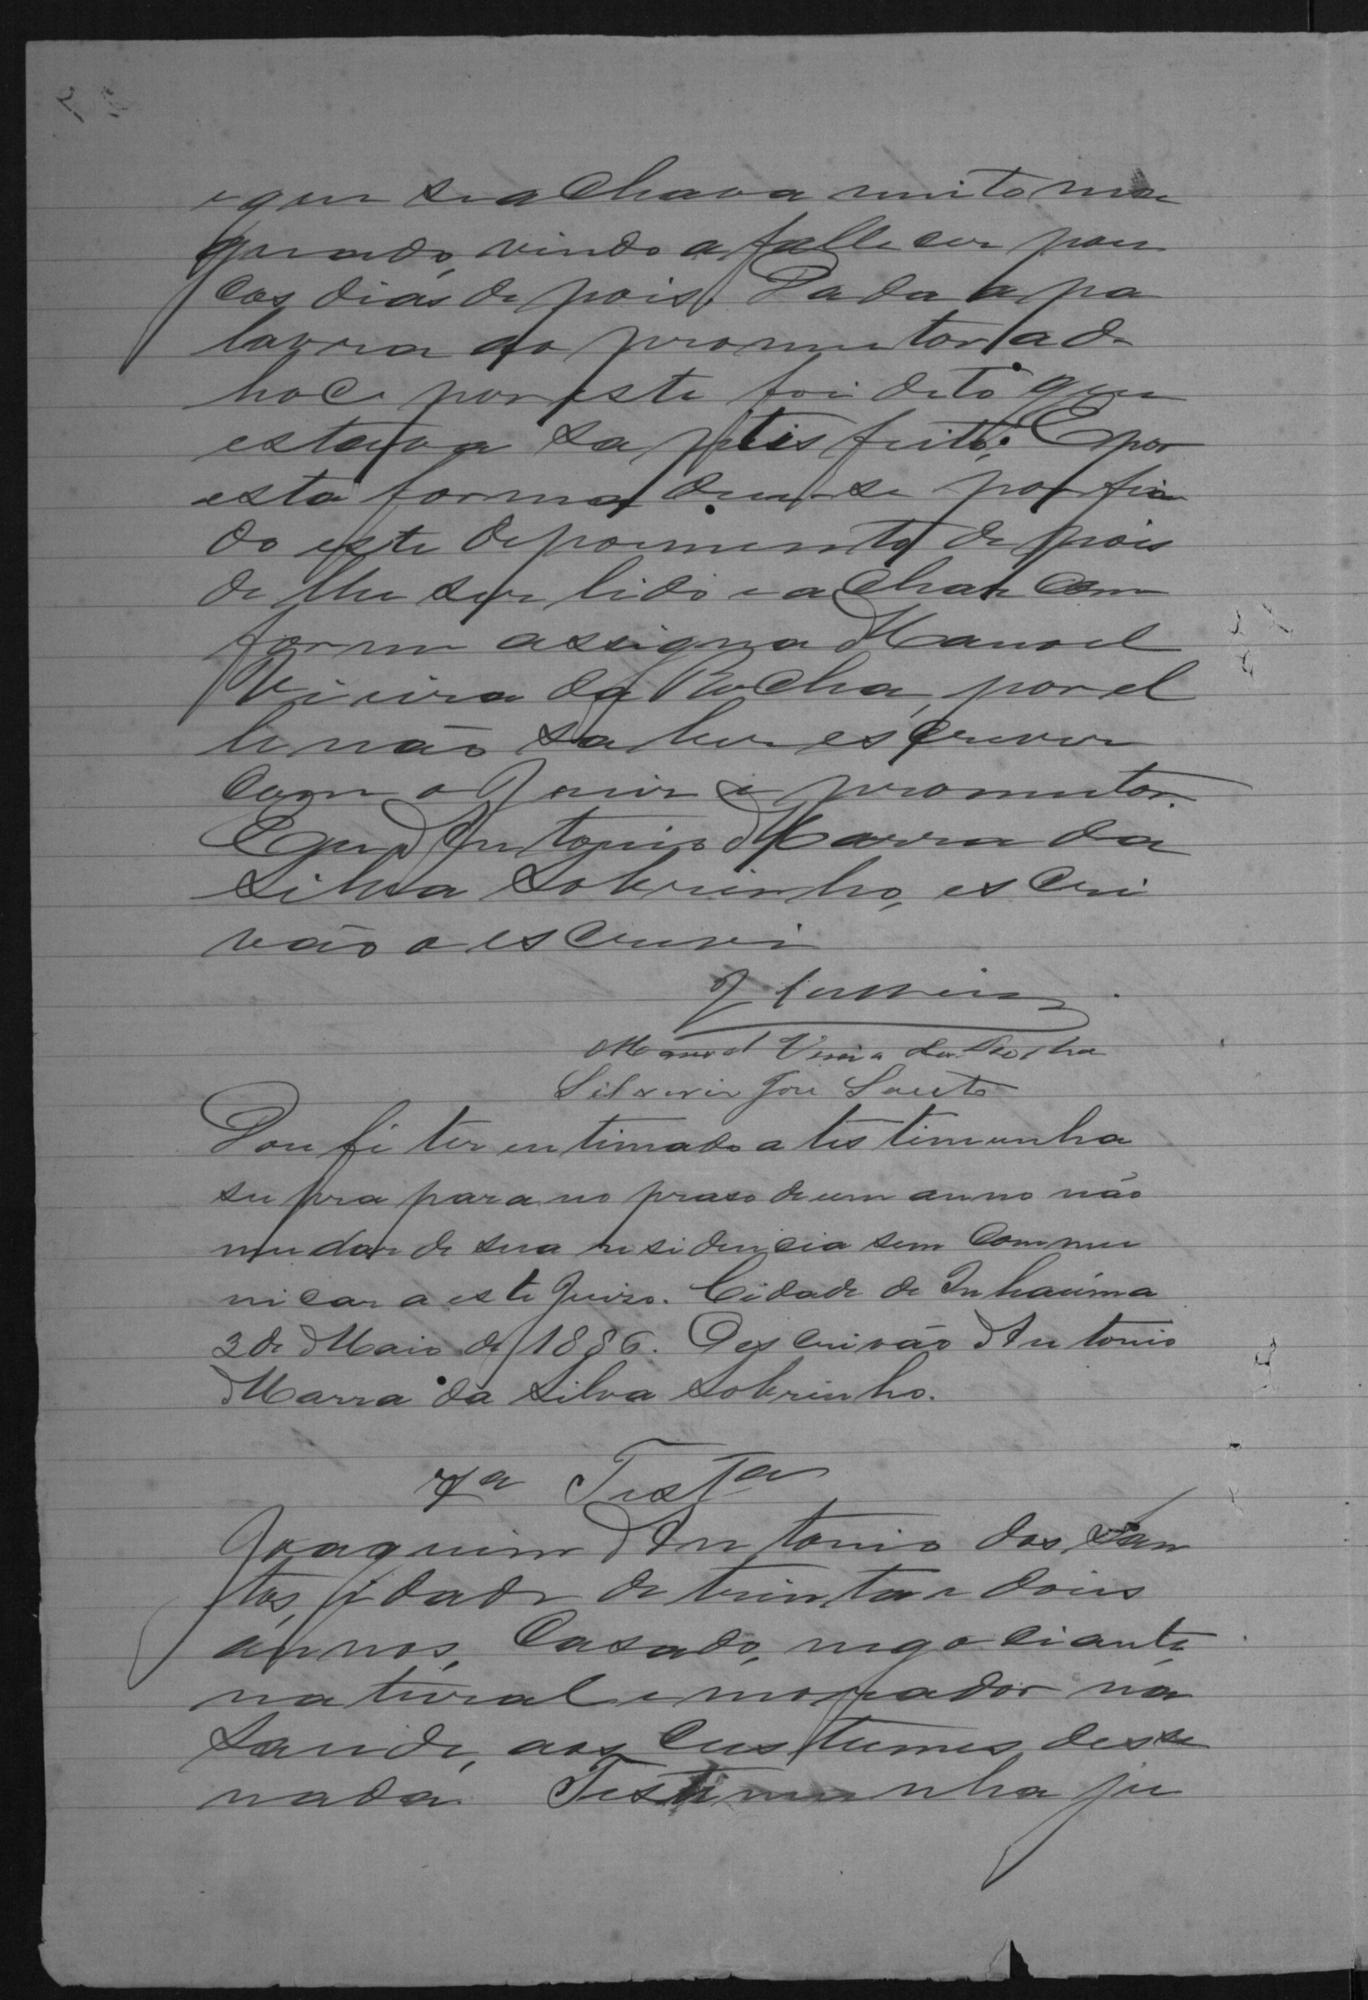 e que se achava muito ma
goado, vindo a fallecer pou
cos dias depois. Dada a pa
lavra ao promotor ad
hoc, por este foi dito que
estava satisfeito. E por
esta forma deu-se por fin
do este depoimento depois
de lhe ser lido e achar con
forme assigna Manoel
Vieira da Rocha, por el
le não saber escrever
com o Juiz e promotor.
Eu Antonio Marra da
Silva Sobrinho, escri
vão o escrevi
Manoel Vieira da Rocha
Silverio José Souto
Dou fé ter intimado a testimunha
supra para no praso de um anno não
mudar de sua residencia sem commu
nicar a este Juizo. Cidade de Inhaúma
2 de Maio de 1886. O escrivão Antonio
Marra da Silva Sobrinho.
7ª Testª
Joaquim Antonio dos San
tos, idade de trinta e dous
annos, casado, negociante,
natural e morador na
Saude, aos custumes disse
nada. Testimunha ju